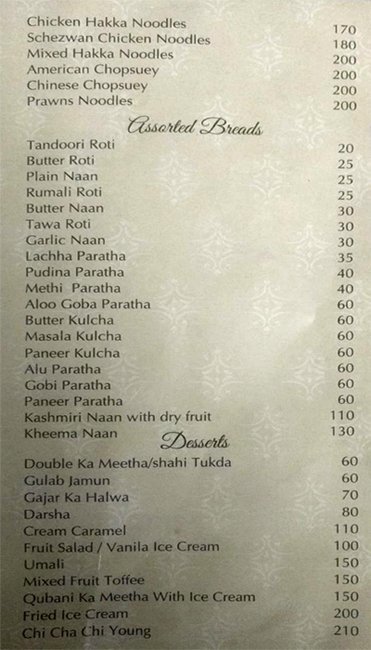 Chicken Hakka Noodles 170
Schezwan Chicken Noodles 180
Mixed Hakka Noodles 200
American Chopsuey 200
Chinese Chopsuey 200
Prawns Noodles 200
Assorted Breads
Tandoori Roti 20
Butter Roti 25
Plain Naan 25
Rumali Roti 25
Butter Naan 30
Tawa Roti 30
Garlic Naan 30
Lachha Paratha 35
Pudina Paratha 40
Methi Paratha 40
Aloo Goba Paratha 60
Butter Kulcha 60
Masala Kulcha 60
Paneer Kulcha 60
Alu Paratha 60
Gobi Paratha 60
Paneer Paratha 60
Kashmiri Naan with dry fruit 110
Kheema Naan 130
Desserts
Double Ka Meetha/shahi Tukda 60
Gulab Jamun 60
Gajar Ka Halwa 70
Darsha 80
Cream Caramel 110
Fruit Salad / Vanila Ice Cream 100
Umali 150
Mixed Fruit Toffee 150
Qubani Ka Meetha With Ice Cream 150
Fried Ice Cream 200
Chi Cha Chi Young 210